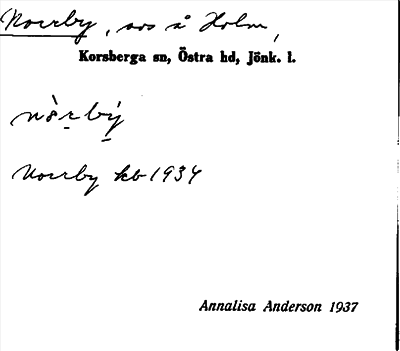 Norrby, sos å Holm,
Korsberga sn, Östra hd, Jönk. l.
nòrbý
Norrby kb 1934
Annalisa Anderson 1937